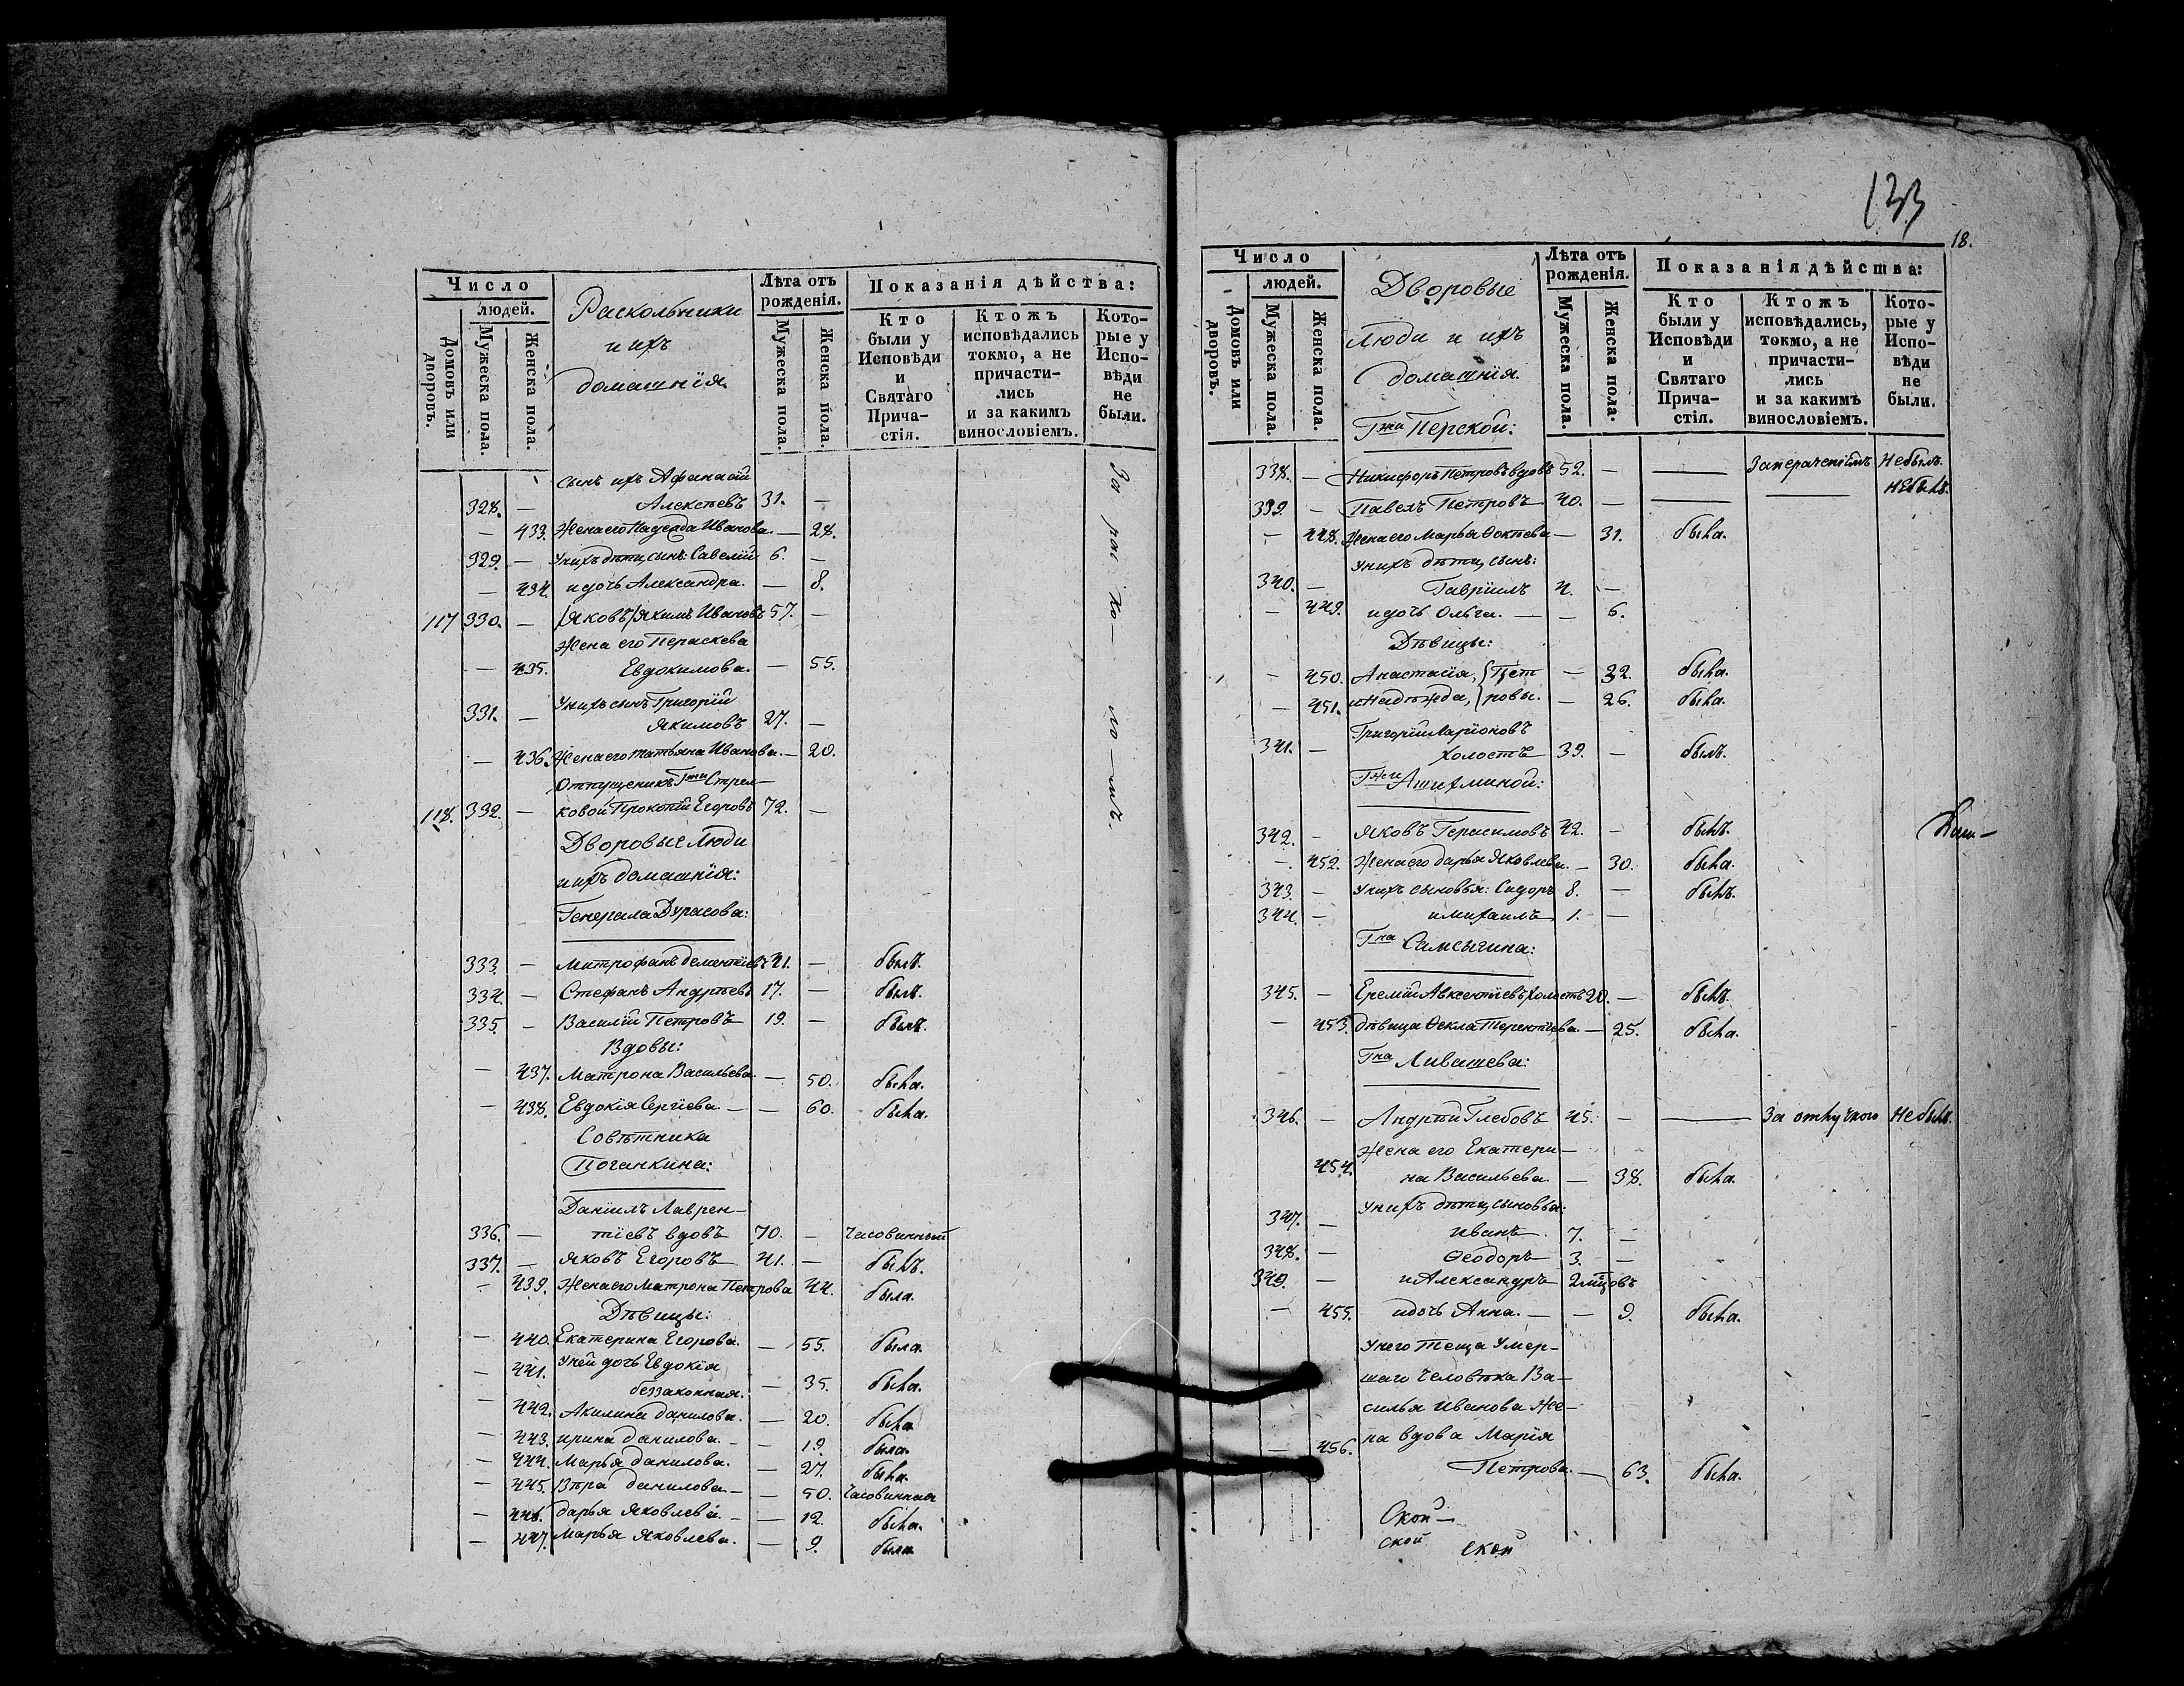 Число
людей.
Домовъ или дворовъ.
Мужеска пола.
Женска пола.
Раскольники
и ихъ
домашнія
Лѣта отъ рожденія.
Мужеска пола.
Женска пола.
Показанія дѣйства:
Кто были у Исповѣди и Святаго Прича- стія.
Ктожъ исповѣдались токмо, а не причасти- лись и за какимъ винословіемъ.
Кото- рые у Испо- вѣди не были.
За рас ко ло мъ.
сынъ ихъ Афанасій
328. — Алексѣевъ 31. —
— 433. Жена его Надежда Иванова. — 28.
329. — У нихъ дѣти, сынъ: Савелій 6. —
— 434. и дочь Александра. — 8.
117 330. — /Яковъ/ Якимъ Ивановъ 57. —
Жена его Параскева
— 435. Евдокимова. — 55.
У нихъ сынъ Григорій
331. — Якимовъ 27. —
— 436. Жена его Татьяна Иванова. — 20.
Отпущеникъ Гжи Стрел—
118. 332. — ковой Прокопій Егоровъ 72. —
Дворовые Люди
и ихъ домашнія:
Генерала Дурасова:
333. — Митрофанъ Дементіевъ 41. — былъ.
334. — Стефанъ Андрѣевъ 17. — былъ.
335. — Василій Петровъ 19. — былъ.
Вдовы:
— 437. Матрона Васильева. — 50. была.
— 438. Евдокія Сергіева. — — 60. была.
Совѣтника
Поганкина:
Даніилъ Лаврен—
336. — тіевъ вдовъ 70. — Часовинный
337. — Яковъ Егоровъ 41. — былъ.
— 439. Жена его Матрона Петрова 44. была.
Дѣвицы:
— 440. Екатерина Егорова. — 55. была.
— 441. У ней дочь Евдокія
беззаконная. — 35. была.
— 442. Акилина Данилова. — 20. была
— 443. Ирина Данилова. — — 19. была.
— 444. Марья Данилова. — 27. была.
— 445. Вѣра Данилова. — — 50. Часовинная
— 446. Дарья Яковлева. — — 12. была.
— 447. Марья Яковлева. — 9. была.
133
18.
Число
людей.
Домовъ или дворовъ.
Мужеска пола.
Женска пола.
Дворовые
Люди и ихъ
домашнія.
Гжи Перской:
Лѣта отъ рожденія.
Мужеска пола.
Женска пола.
Показанія дѣйства:
Кто были у Исповѣди и Святаго Прича- стія.
Ктожъ исповѣдались, токмо, а не причасти- лись и за какимъ винословіемъ.
Кото- рые у Испо- вѣди не были.
338. — Никифоръ Петровъ вдовъ 52. — — Не былъ.
339. — Павелъ Петровъ 40. — — — не былъ.
— 448. Жена его Марья Фоктева — 31. была.
У нихъ дѣти, сынъ:
340. — Гавріилъ 4. —
— 449. и дочь Ольга. — — 6.
Дѣвицы:
— 450. Анастасія, {Пет — 32. была.
— 451. и Надѣжда, }ровы. — 26. была.
Григорій Ларіоновъ
341. — холостъ 39. — былъ.
342. — Яковъ Герасимовъ 42. — былъ.
— 452. Жена его Дарья Яковлева. — 30. была.
343. — У нихъ сыновья: Сидоръ 8. — былъ.
344. — и Михаилъ 1. —
Гна Самсыгина:
345. — Еремій Авксентіевъ холостъ 20. — былъ.
— 453. дѣвица Фекла Терентіева. — 25. была.
Гна Ливашева:
346. — Андрѣй Глебовъ 45. — — За отлучкою Не былъ.
Жена его Екатери—
454. на Васильева. — 38. была.
У нихъ дѣти, сыновья:
347. — Иванъ. 7. —
348. — Феодоръ 3. —
349. — и Александръ 2 мцовъ
— 455. и дочь Анна. — — 9. была.
У него теща умер—
шаго человѣка Ва—
силья Иванова Же—
на вдова Марія
— 456. Петрова. — 63. была.
Скоп—
ской скоп